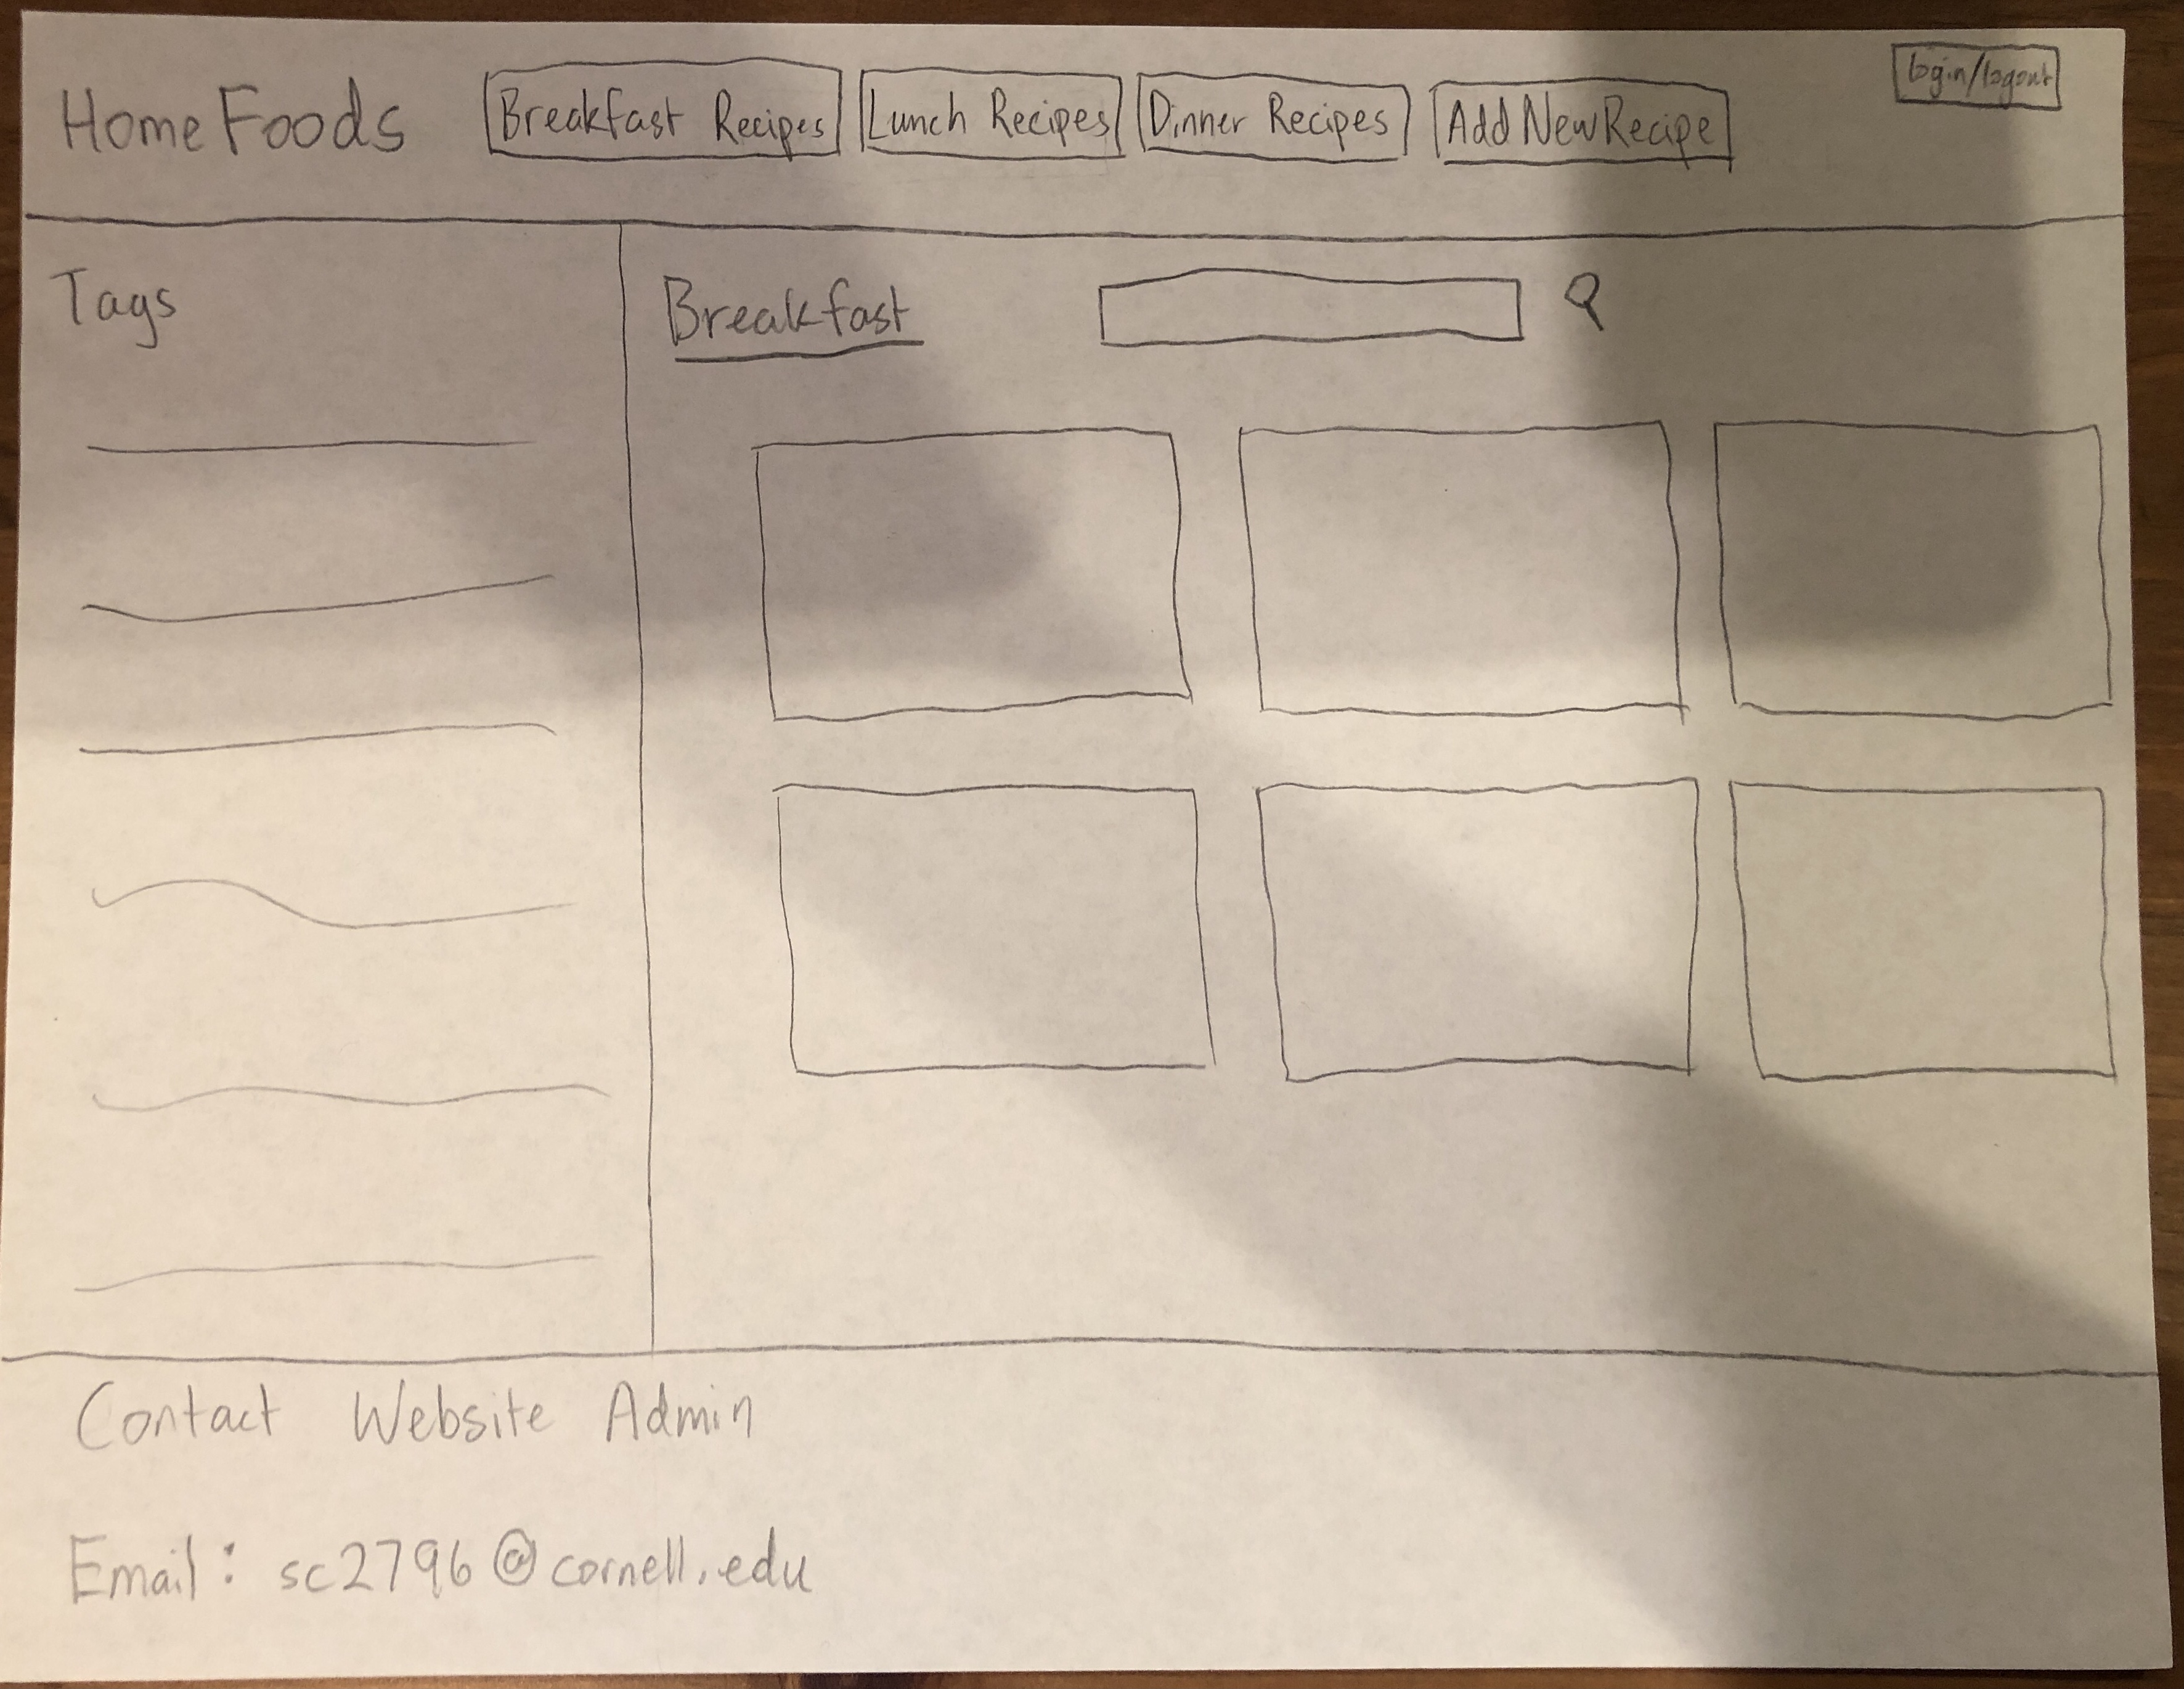 Home Foods
Breakfast Recipes
Lunch Recipes
Dinner Recipes
Add New Recipe
login/logout
Tags
Breakfast
Contact Website Admin
Email: sc2796@cornell.edu